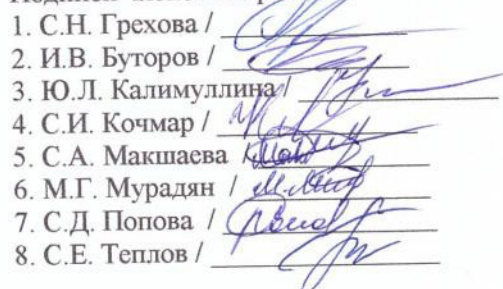 1. С.Н. Грехова /
2. И.В. Буторов /
3. Ю.Л. Калимуллина /
4. С.И. Кочмар /
5. С.А. Макшаева
6. М.Г. Мурадян /
7. С.Д. Попова /
8. С.Е. Теплов /